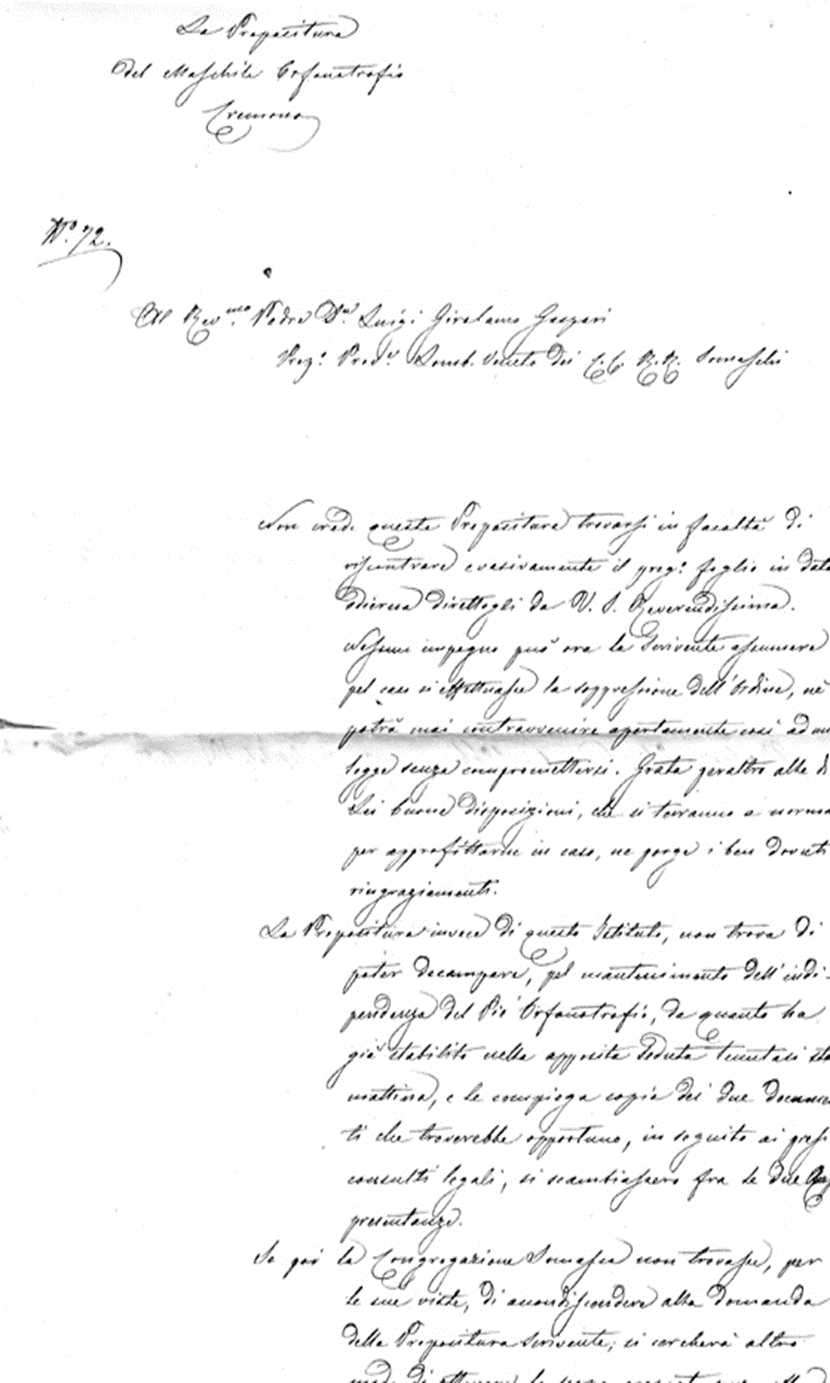 La Prepositura
del Maschile Orfanotrofio
Cremona
N.° 72.
Al Rev.mo Padre D.n Luigi Girolamo Gaspari
Prep.° Prov.le Lomb. Veneto dei C.C. R.R. Somaschi
Non crede questa Prepositura trovarsi in facoltà di
riscontrare evasivamente il preg.° foglio in data
odierna direttogli da V. S. Reverendissima.
Nessun impegno può ora la Scrivente assumere
pel caso si effettuasse la soppressione dell'Ordine, nè
potrà mai contravvenire apertamente così ad un
legge senza compromettersi. Grata peraltro alle di
Lei buone disposizioni, che si terranno a norma
per approfittarne in caso, ne porge i ben dovuti
ringraziamenti.
La Prepositura invece di questo Istituto, non trova di
poter decampare, pel mantenimento dell'indi-
pendenza del Pio Orfanotrofio, da quanto ha
già stabilito nella apposita Seduta tenutasi sta
mattina, e le compiega copia dei due documen
ti che troverebbe opportuno, in seguito ai presi
consulti legali, si scambiassero fra le due Rap
presentanze.
Se poi la Congregazione Somasca non trovasse, per
le sue viste, di accondiscendere alla domanda
della Prepositura scrivente, si cercherà altro
modo di ottenere lo scopo